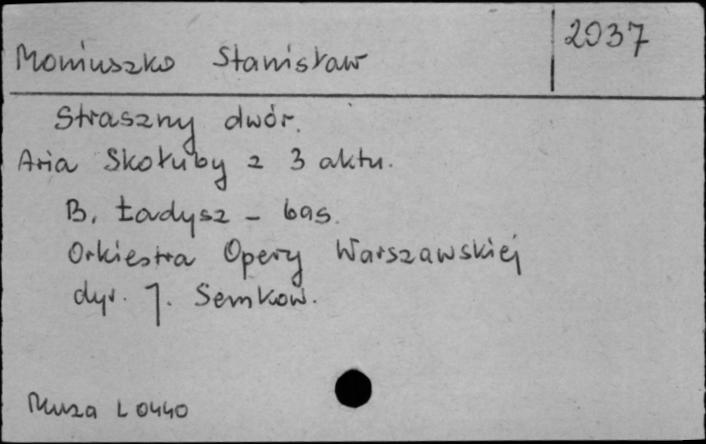 Moniuszko Stanisław 2037
Straszny dwór.
Aria Skołuby z 3 aktu.
B. Ładysz - bas.
Orkiestra Opery Warszawskiej
dyr. J. Semkow.
Muza L 0440